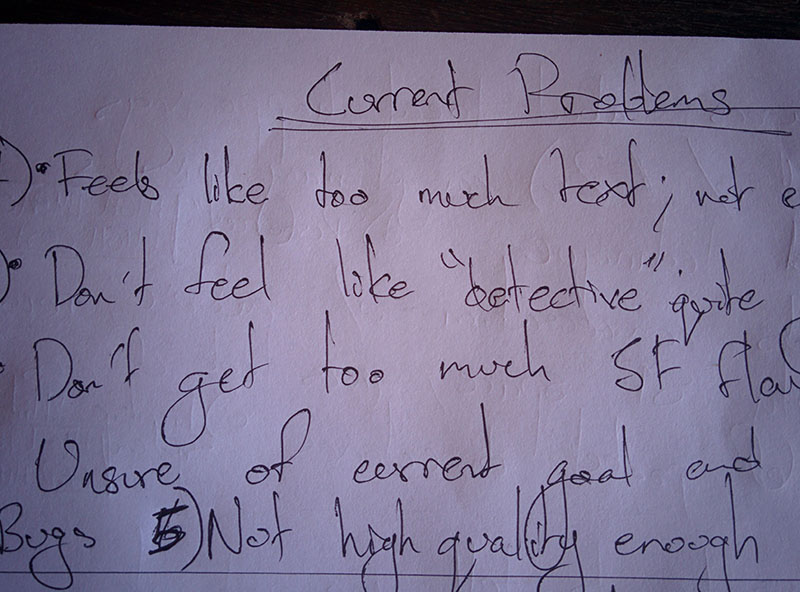 Current Problems
) • Feels like too much text; not e
) • Don't feel like "detective" quite
• Don't get too much SF flav
Unsure of current goal and
Bugs 5) Not high quality enough